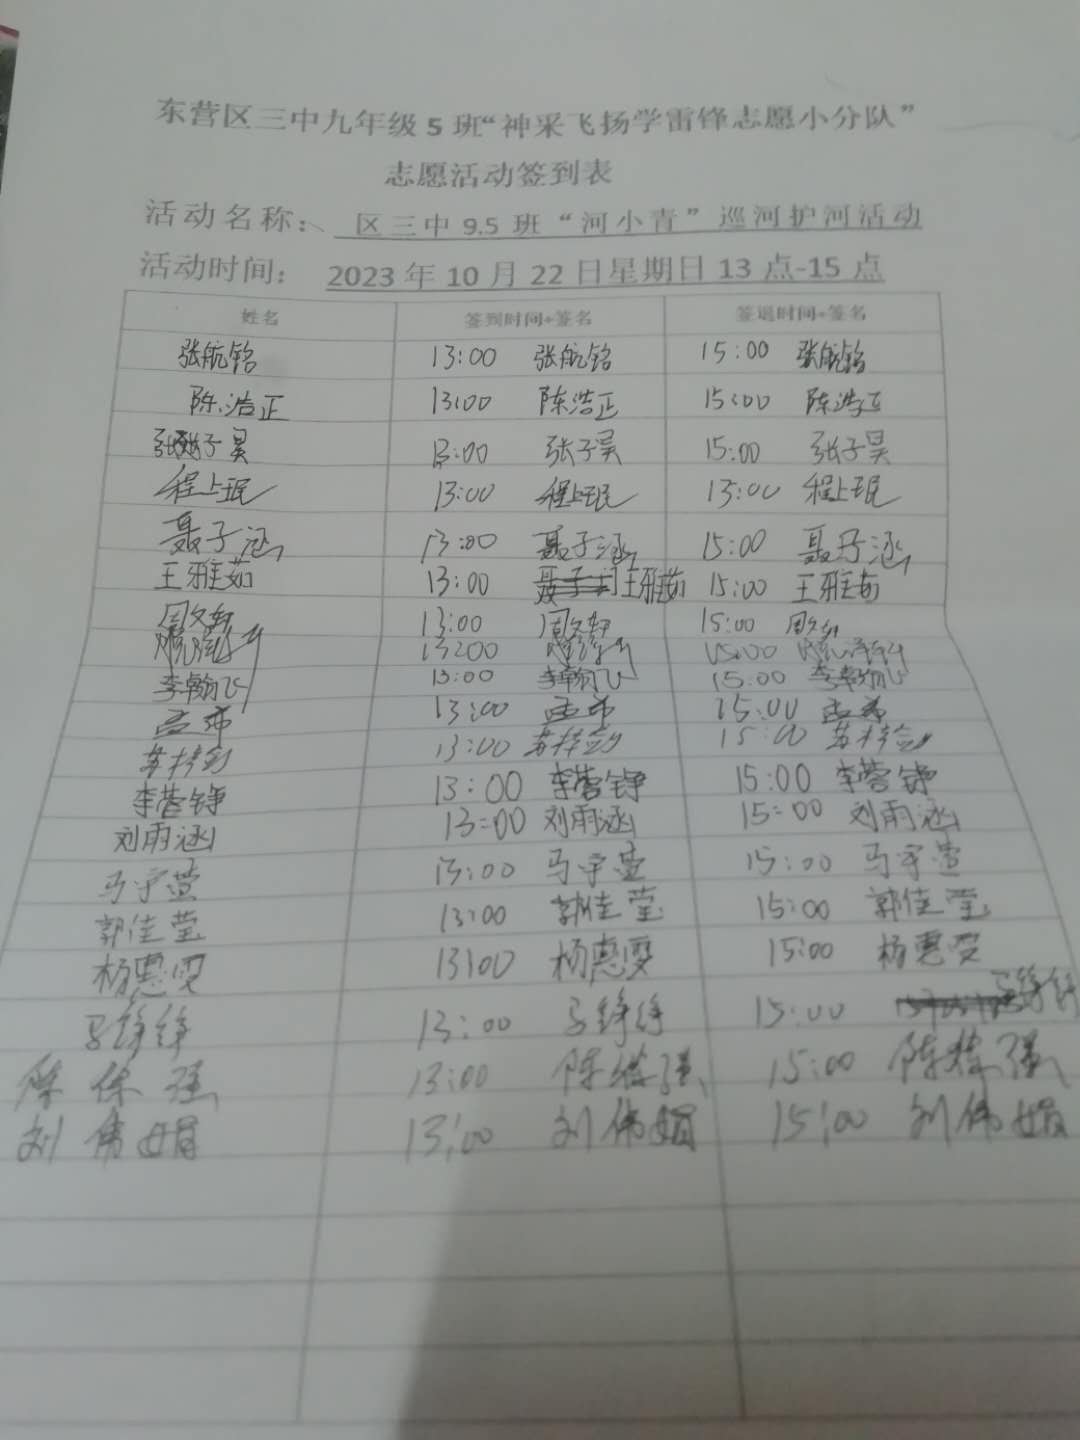 东营区三中九年级 5 班“神采飞扬学雷锋志愿小分队”
志愿活动签到表
活动名称： 区三中 9.5 班“河小青”巡河护河活动
活动时间： 2023 年 10 月 22 日星期日 13 点-15 点
姓名 签到时间+签名 签退时间+签名
张航铭 13:00 张航铭 15:00 张航铭
陈浩正 13:00 陈浩正 15:00 陈浩正
张子昊 13:00 张子昊 15:00 张子昊
程上珉 13:00 程上珉 15:00 程上珉
聂子涵 13:00 聂子涵 15:00 聂子涵
王雅茹 13:00 王雅茹 15:00 王雅茹
周文轩 13:00 周文轩 15:00 周文轩
13:00 15:00
李翰飞 13:00 李翰飞 15:00 李翰飞
孟希 13:00 孟希 15:00 孟希
苏梓 13:00 苏梓 15:00 苏梓
李蓉铮 13:00 李蓉铮 15:00 李蓉铮
刘雨涵 13:00 刘雨涵 15:00 刘雨涵
马宇萱 13:00 马宇萱 15:00 马宇萱
郭佳莹 13:00 郭佳莹 15:00 郭佳莹
杨惠雯 13:00 杨惠雯 15:00 杨惠雯
马铮铮 13:00 马铮铮 15:00 马铮铮
陈 强 13:00 陈 强 15:00 陈 强
刘伟娟 13:00 刘伟娟 15:00 刘伟娟